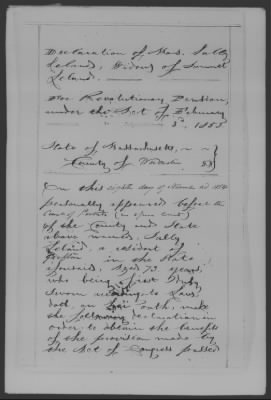 Declaration of Mrs. Sally
Leland, Widow of Samuel
Leland.
For Revolutionary Pension,
under the Act of February
3d, 1853
State of Massachusetts, ~ ~ }
County of Worcester SS }
On this eighth day of March AD 1854
personally appeared before the
Court of Probate (in open Court)
of the County and State
above named, Sally
Leland, a resident of
Grafton in the State
aforesaid, Aged 73 years,
who being first duly
sworn according to Law,
doth, on her Oath, make
the following declaration in
order to obtain the benefit
of the provision made by
the Act of Congress passed